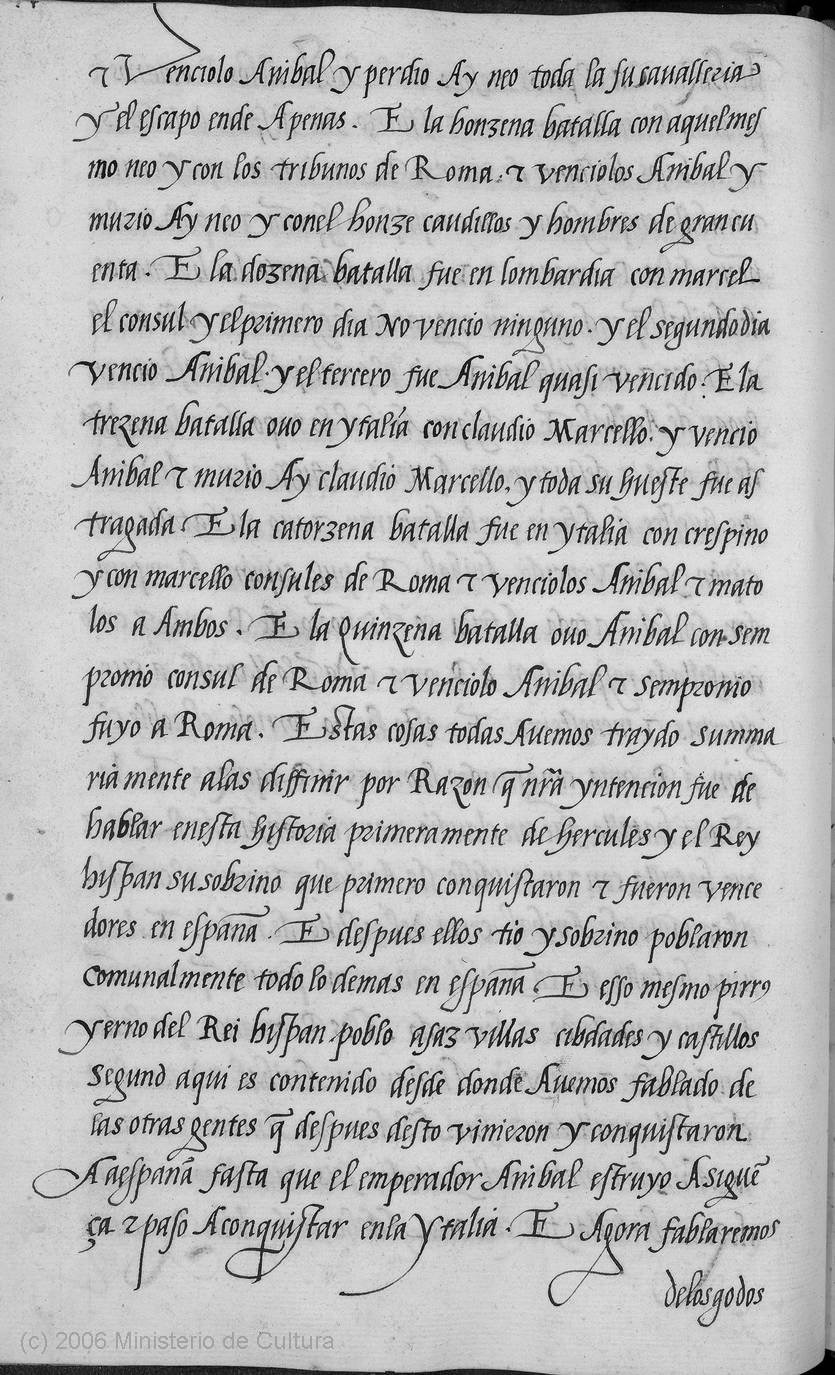 ⁊ Venciolo Anibal y perdio Ay neo toda la su cavalleria
y el escapo ende Apenas. E la honzena batalla con aquel mes
mo neo y con los tribunos de Roma. ⁊ venciolos Anibal y
murio Ay neo y conel honze caudillos y hombres de gran cu
enta. E la dozena batalla fue en lombardia con marcel
el consul y el primero dia No vencio ninguno. y el segundo dia
vencio Anibal. y el tercero fue Anibal quasi vencido. E la
trezena batalla ovo en ytalia con claudio Marcello. y vencio
Anibal ⁊ murio Ay claudio Marcello, y toda su hueste fue as
tragada. E la catorzena batalla fue en ytalia con crespino
y con marcello consules de Roma ⁊ venciolos Anibal ⁊ mato
los a Ambos. E la Quinzena batalla ovo Anibal con sem
pronio consul de Roma ⁊ venciolo Anibal ⁊ sempronio
fuyo a Roma. Estas cosas todas Avemos traydo summa
riamente alas diffinir por Razon q̃ nr̃a yntencion fue de
hablar enesta historia primeramente de hercules y el Rey
hispan su sobrino que primero conquistaron ⁊ fueron vence
dores en españa. E despues ellos tio y sobrino poblaron
comunalmente todo lo demas en españa. E esso mesmo pirrꝯ
yerno del Rei hispan poblo asaz villas cibdades y castillos
segund aqui es contenido desde donde Avemos fablado de
las otras gentes q̃ despues desto vinieron y conquistaron
A aespaña fasta que el emperador Anibal estruyo A siguẽ
ça ⁊ paso A conquistar enla ytalia. E Agora fablaremos
delos godos
(c) 2006 Ministerio de Cultura